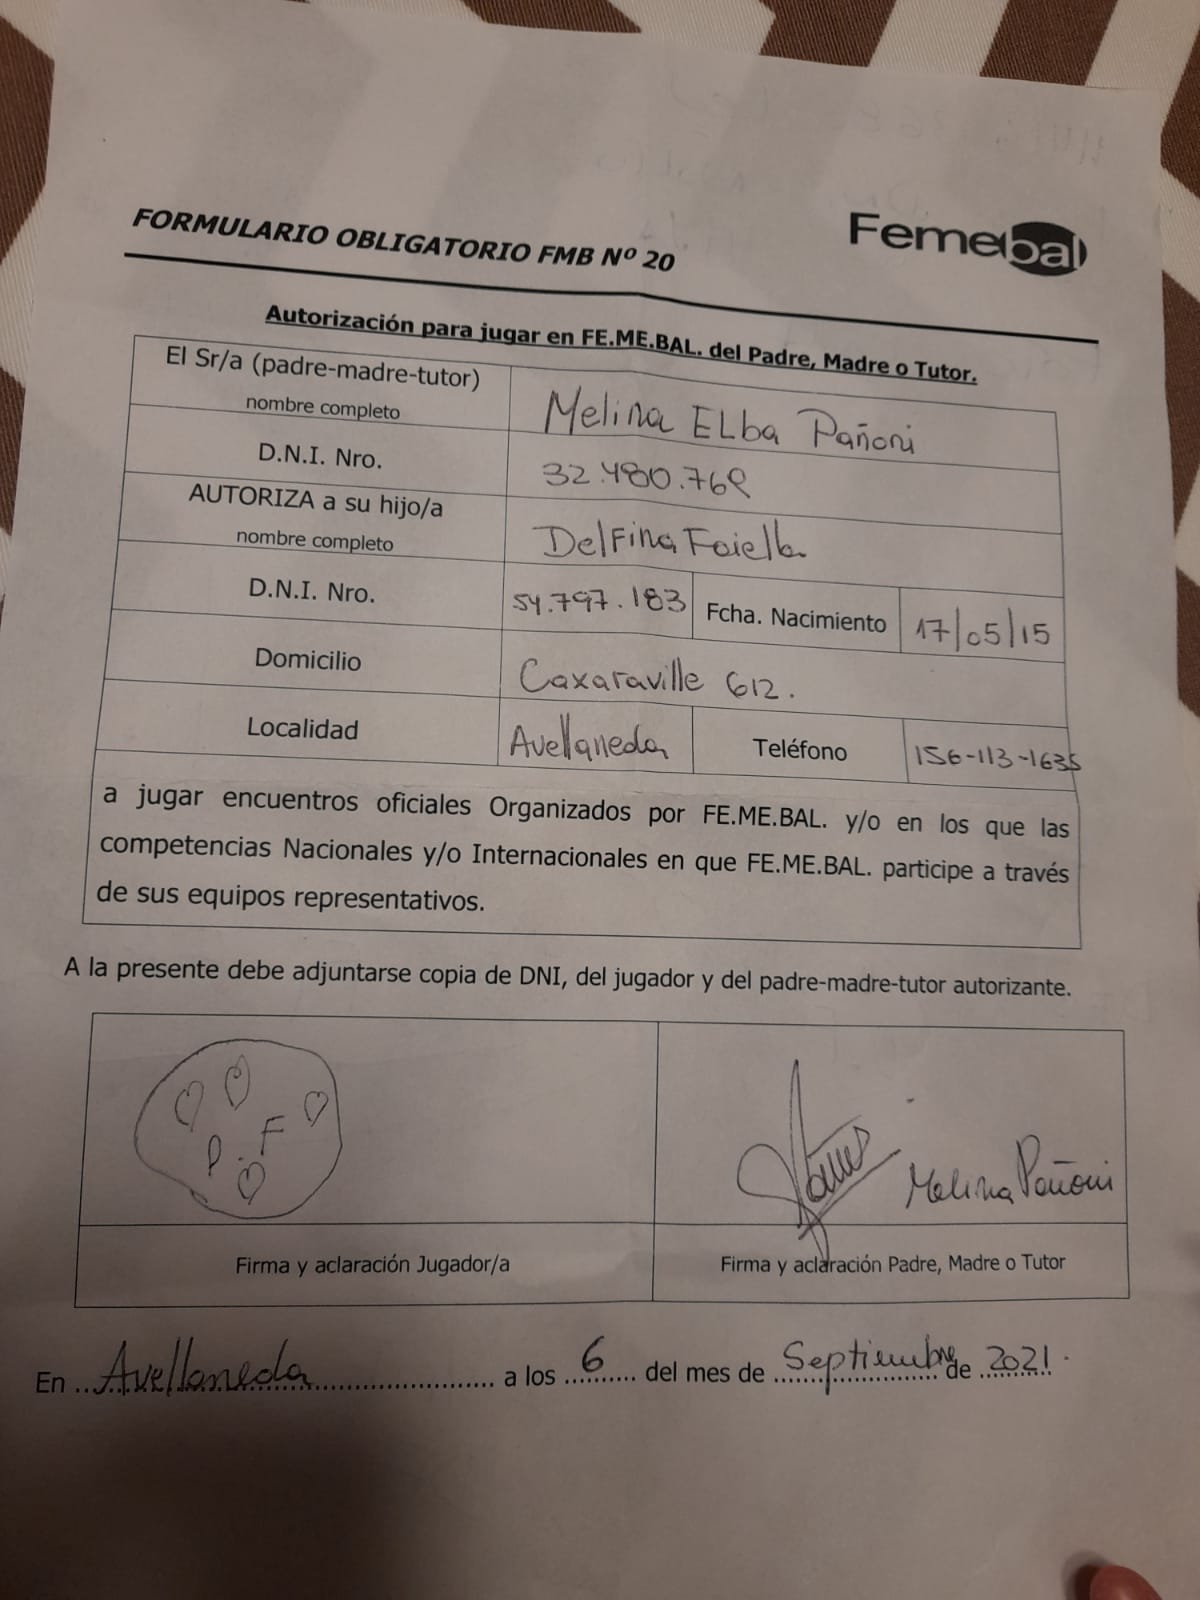 FORMULARIO OBLIGATORIO FMB Nº 20
Femebal
Autorización para jugar en FE.ME.BAL. del Padre, Madre o Tutor.
El Sr/a (padre-madre-tutor)
nombre completo
Melina ELba Pañoni
D.N.I. Nro.
32.480.768
AUTORIZA a su hijo/a
nombre completo
Delfina Faiella
D.N.I. Nro.
54.797.183
Fcha. Nacimiento
17/05/15
Domicilio
Caxaraville 612.
Localidad
Avellaneda
Teléfono
156-113-1635
a jugar encuentros oficiales Organizados por FE.ME.BAL. y/o en los que las
competencias Nacionales y/o Internacionales en que FE.ME.BAL. participe a través
de sus equipos representativos.
A la presente debe adjuntarse copia de DNI, del jugador y del padre-madre-tutor autorizante.
D.F
Melina Pañoni
Firma y aclaración Jugador/a
Firma y aclaración Padre, Madre o Tutor
En Avellaneda a los 6 del mes de Septiembre de 2021.